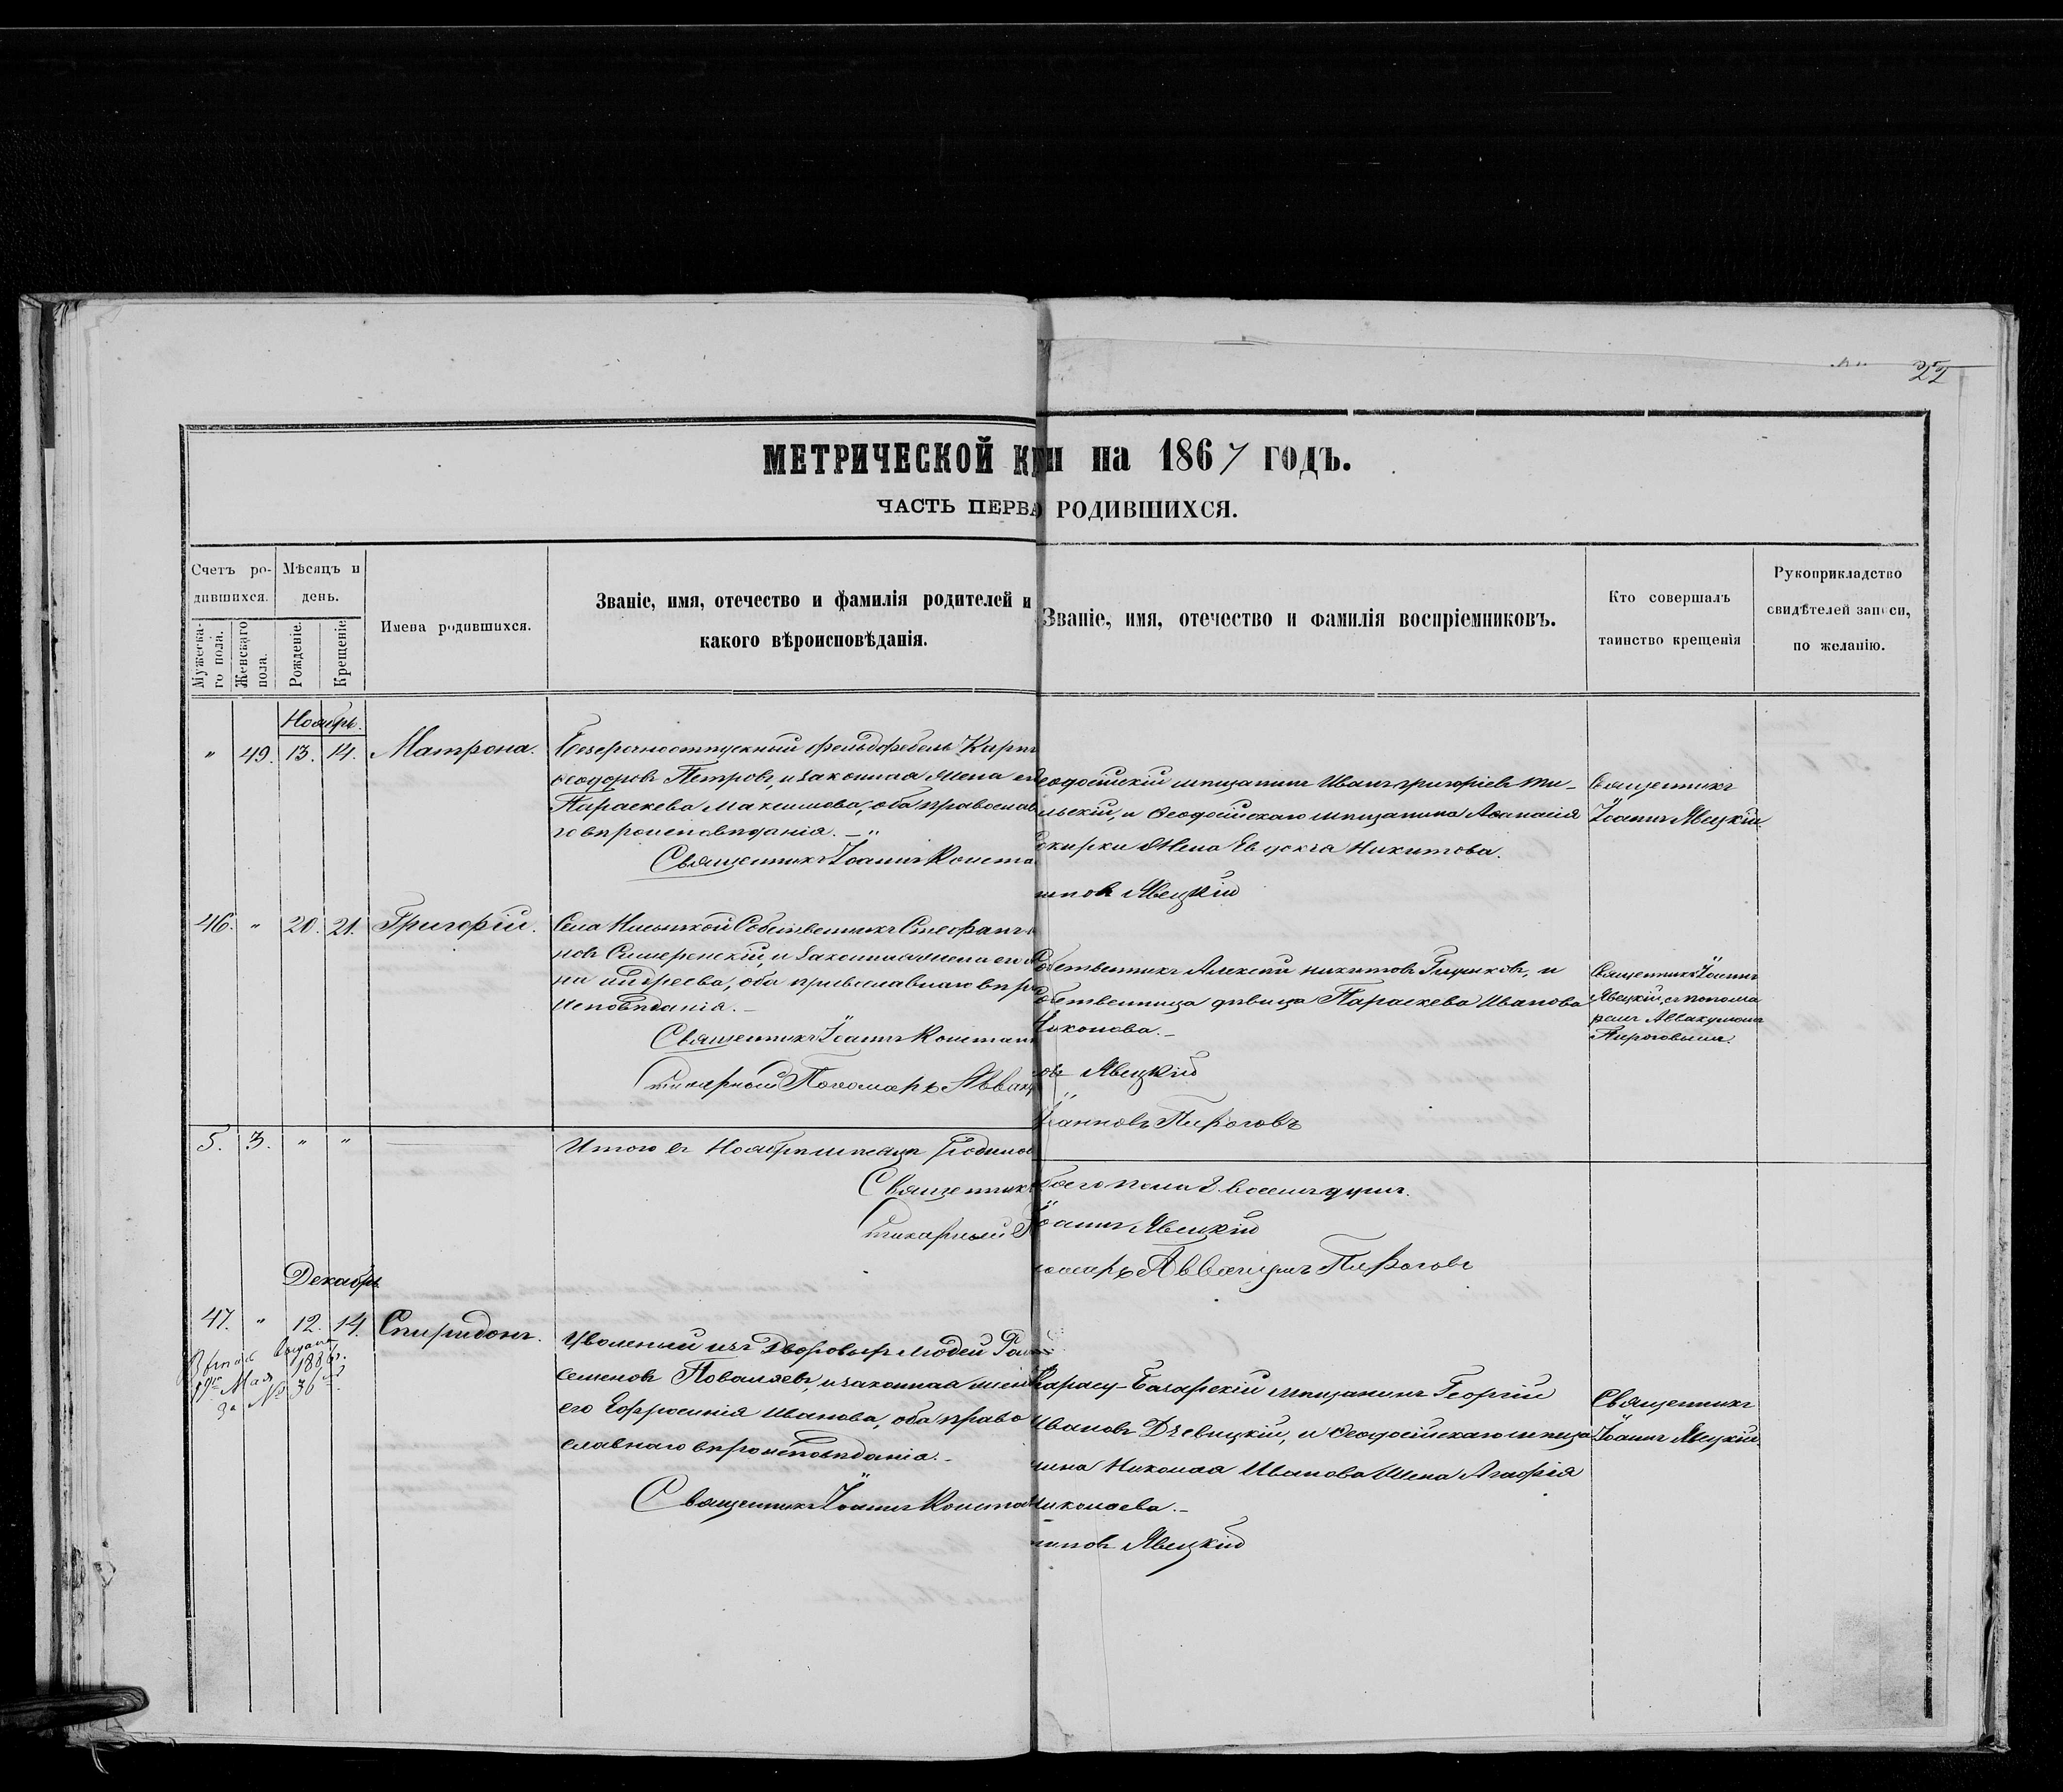 22
МЕТРИЧЕСКОЙ КН ги на 1867 годъ.
ЧАСТЬ ПЕРВА РОДИВШИХСЯ.
Счетъ ро-
дившихся.
Мужеска-
го пола.
Женскаго
пола.
Мѣсяцъ и
день.
Рожденіе.
Крещеніе
Имена родившихся.
Званіе, имя, отечество и фамилія родителей и
какого вѣроисповѣданія.
Званіе, имя, отечество и фамилія воспріемниковъ.
Кто совершалъ
таинство крещенія
Рукоприкладство
свидѣтелей записи,
по желанію.
Ноябрь.
" 49. 13. 14. Матрона.
Безсрочноотпускный фельдфебель Карпъ
Ѳеодоровъ Петровъ, и законная жена ег
Параскева Максимова, оба православ
вѣроисповѣданія. —
Священникъ Іоаннъ Конста
еодосійскій мѣщанинъ Иванъ Григоріевъ
и Ѳеодосійскаго мѣщанина Аѳанасія
жена Евдокія Никитова.
нтовъ Явецкій
Священникъ
Іоаннъ Явецкій.
46. " 20. 21. Григорій.
Села Собственникъ Стефанъ
новъ и законная жена его
Андреева, оба православнаго вѣро
исповѣданія. —
Священникъ Іоаннъ Констан
Пономарь Аввак
Собственникъ Алексѣй Никитовъ и
Собственница дѣвица Параскева Иванова
Никонова. —
овъ Явецкій
Іоанновъ Пироговъ
Священникъ Іоаннъ
Явецкій, съ понома
ремъ Аввакумомъ
Пироговымъ.
5. 3. " "
Итого въ Ноябрѣ мѣсяцѣ родилос
Священникъ
обоего пола 8 восемь душъ.
Іоаннъ Явецкій
номарь Аввакумъ Пироговъ
Декабрь
47. " 12. 14. Спиридонъ.
выдано
19го Мая 1886 г.
за № 36
Уволеный изъ Дворовыхъ людей
Семеновъ Поваляевъ, и законная жен
его Ефросинія Иванова, оба право
славнаго вѣроисповѣданія. —
Священникъ Іоаннъ Конста
Карасу-Базарскій мѣщанинъ Георгій
Ивановъ Дзевицкій, и Ѳеодосійскаго мѣща
нина Николая Иванова жена Агафія
Николаева. —
нтовъ Явецкій
Священникъ
Іоаннъ Явецкій.